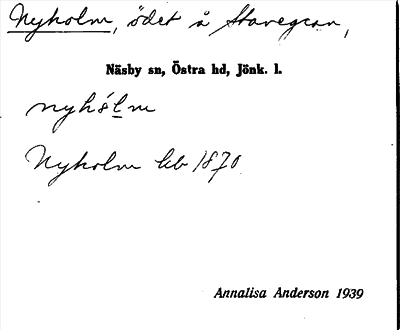 Nyholm, ödet å Stavegean,
Näsby sn, Östra hd, Jönk. l.
nyhólm
Nyholm hb 1870
Annalisa Anderson 1939